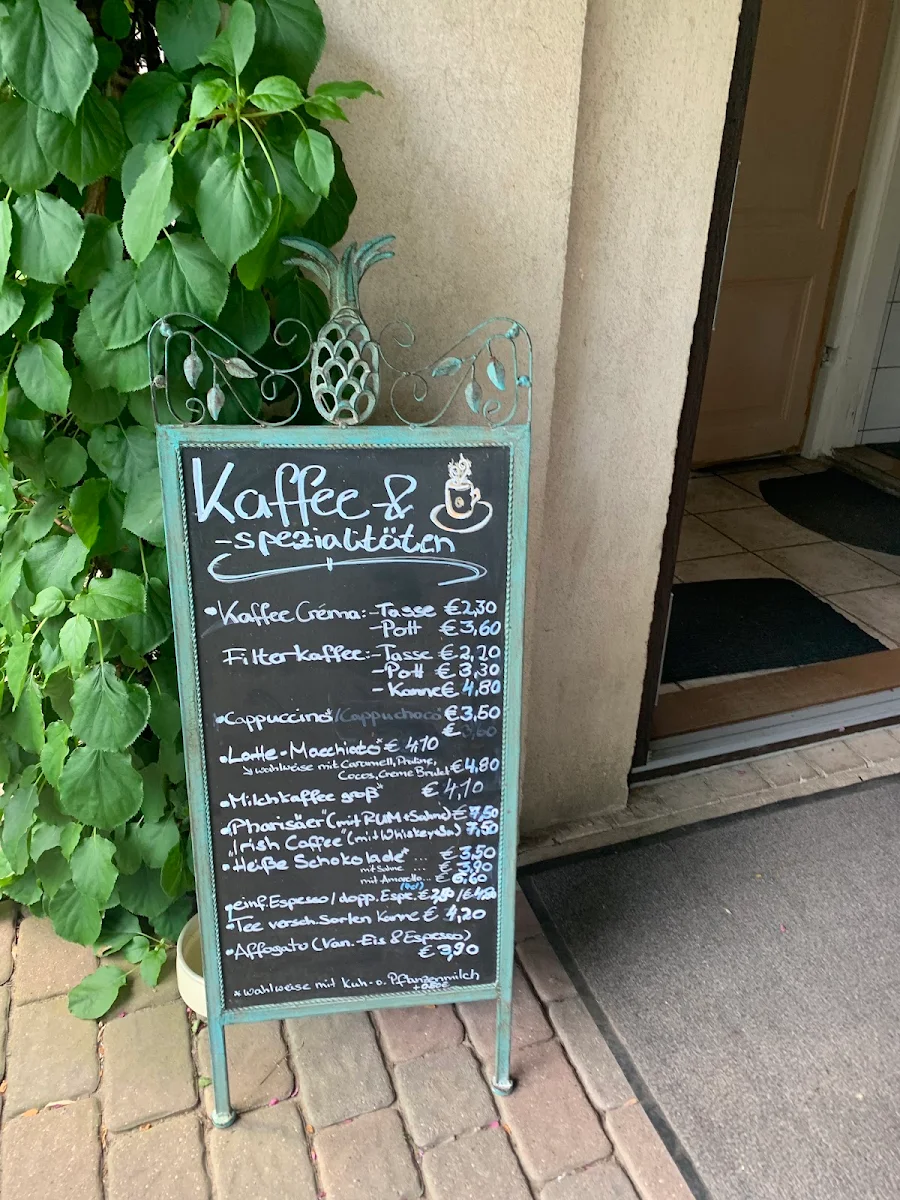 Kaffee &
-spezialitäten
•Kaffee Créma:-Tasse €2,30
-Pott €3,60
Filterkaffee:-Tasse €2,20
-Pott €3,30
-Kanne€4,80
•Cappuccino*/Cappuchoco €3,50
€ 3,60
•Latte-Macchiato*€ 4,10
wahlweise mit Caramell, Praline,
Cocos, Creme Brulee €4,80
•Milchkaffee groß* € 4,10
•"Pharisäer"(mit RUM+Sahne)€7,50
"Irish Coffee"(mit Whiskey+Sa) 7,50
•Heiße Schokolade* ... €3,50
mit Sahne ... € 3,90
mit Amaretto... € 6,60
•einf. Espresso/dopp. Espr.
•Tee versch. Sorten Kanne € 4,20
•Affogato (Van.-Eis & Espresso)
€ 3,90
*wahlweise mit Kuh-o. Pflanzenmilch